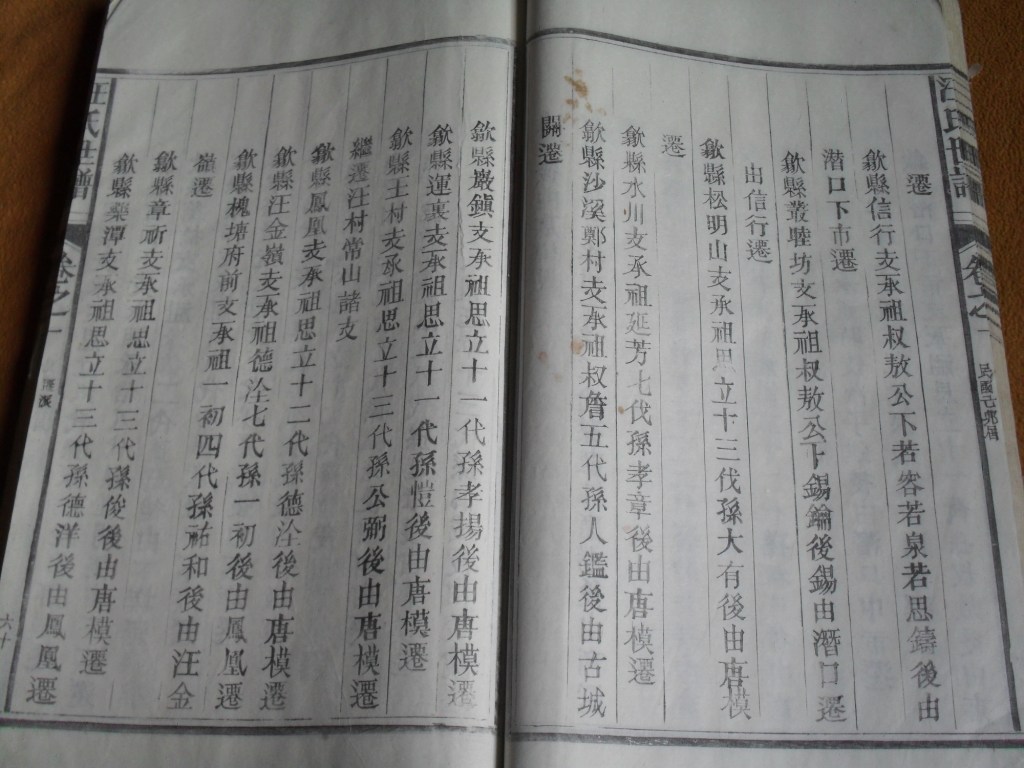 汪氏世譜
卷之一
遷
歙縣信行支承祖叔敖公下若容若泉若思鑄後由
潛口下市遷
歙縣叢睦坊支承祖叔敖公下錫鑰後錫由潛口遷
出信行遷
歙縣松明山支承祖思立十三代孫大有後由唐模
遷
歙縣水川支承祖延芳七代孫孝章後由唐模遷
歙縣沙溪鄭村支承祖叔詹五代孫人鑑後由古城
關遷
歙縣巖鎮支承祖思立十一代孫孝揚後由唐模遷
歙縣運裏支承祖思立十一代孫愷後由唐模遷
歙縣王村支承祖思立十三代孫公弼後由唐模遷
繼遷汪村常山諸支
歙縣鳳凰支承祖思立十二代孫德洤後由唐模遷
歙縣汪金嶺支承祖德洤七代孫一初後由鳳凰遷
歙縣槐塘府前支承祖一初四代孫祐和後由汪金
嶺遷
歙縣章祈支承祖思立十三代孫俊後由唐模遷
歙縣藥潭支承祖思立十三代孫德洋後由鳳凰遷
汪氏世譜
卷之一
六十